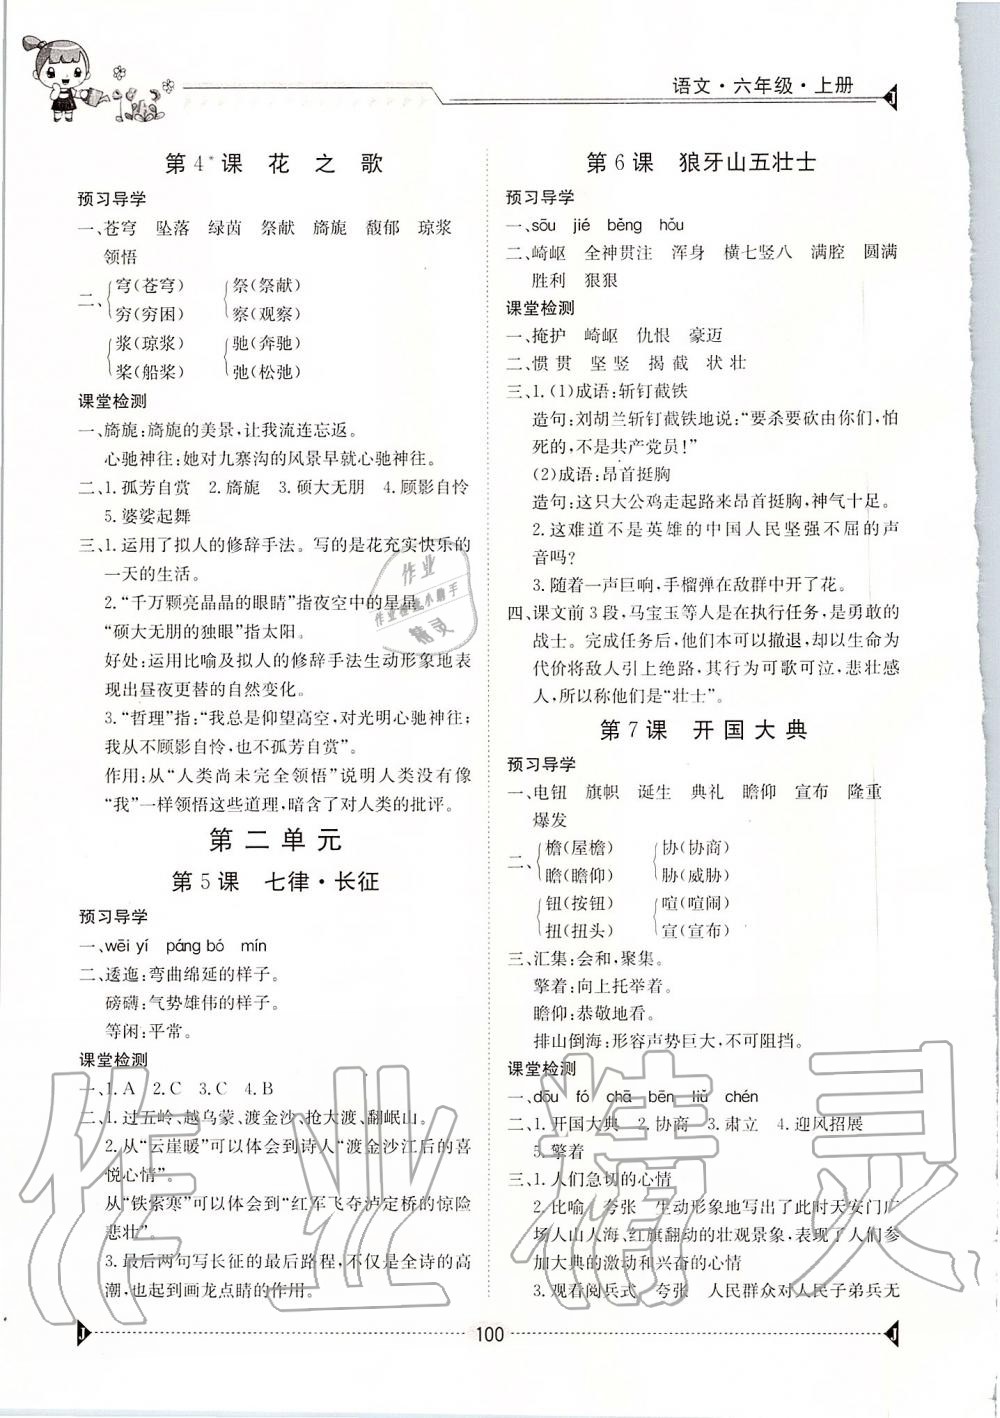 语文·六年级·上册
第4*课 花之歌
预习导学
一、苍穹 坠落 绿茵 祭献 旖旎 馥郁 琼浆
领悟
二、
穹(苍穹) 祭(祭献)
穷(穷困) 察(观察)
浆(琼浆) 驰(奔驰)
桨(船桨) 弛(松弛)
课堂检测
一、旖旎:旖旎的美景,让我流连忘返。
心驰神往:她对九寨沟的风景早就心驰神往。
二、1.孤芳自赏 2.旖旎 3.硕大无朋 4.顾影自怜
5.婆娑起舞
三、1.运用了拟人的修辞手法。写的是花充实快乐的
一天的生活。
2.“千万颗亮晶晶的眼睛”指夜空中的星星。
“硕大无朋的独眼”指太阳。
好处:运用比喻及拟人的修辞手法生动形象地表
现出昼夜更替的自然变化。
3.“哲理”指:“我总是仰望高空,对光明心驰神往;
我从不顾影自怜,也不孤芳自赏”。
作用:从“人类尚未完全领悟”说明人类没有像
“我”一样领悟这些道理,暗含了对人类的批评。
第二单元
第5课 七律·长征
预习导学
一、wēi yí páng bó mín
二、逶迤:弯曲绵延的样子。
磅礴:气势雄伟的样子。
等闲:平常。
课堂检测
一、1.A 2.C 3.C 4.B
二、1.过五岭、越乌蒙、渡金沙、抢大渡、翻岷山。
2.从“云崖暖”可以体会到诗人“渡金沙江后的喜
悦心情”。
从“铁索寒”可以体会到“红军飞夺泸定桥的惊险
悲壮”
3.最后两句写长征的最后路程,不仅是全诗的高
潮,也起到画龙点睛的作用。
第6课 狼牙山五壮士
预习导学
一、sōu jié běng hǒu
二、崎岖 全神贯注 浑身 横七竖八 满腔 圆满
胜利 狠狠
课堂检测
一、掩护 崎岖 仇恨 豪迈
二、惯 贯 坚 竖 揭 截 状 壮
三、1.(1)成语:斩钉截铁
造句:刘胡兰斩钉截铁地说:“要杀要砍由你们,怕
死的,不是共产党员!”
(2)成语:昂首挺胸
造句:这只大公鸡走起路来昂首挺胸,神气十足。
2.这难道不是英雄的中国人民坚强不屈的声
音吗?
3.随着一声巨响,手榴弹在敌群中开了花。
四、课文前3段,马宝玉等人是在执行任务,是勇敢的
战士。完成任务后,他们本可以撤退,却以生命为
代价将敌人引上绝路,其行为可歌可泣,悲壮感
人,所以称他们是“壮士”。
第7课 开国大典
预习导学
一、电钮 旗帜 诞生 典礼 瞻仰 宣布 隆重
爆发
二、
檐(屋檐) 协(协商)
瞻(瞻仰) 胁(威胁)
钮(按钮) 喧(喧闹)
扭(扭头) 宣(宣布)
三、汇集:会和,聚集。
擎着:向上托举着。
瞻仰:恭敬地看。
排山倒海:形容声势巨大,不可阻挡。
课堂检测
一、dōu fó chā bēn liǔ chén
二、1.开国大典 2.协商 3.肃立 4.迎风招展
5.擎着
三、1.人们急切的心情
2.比喻 夸张 生动形象地写出了此时天安门广
场人山人海、红旗翻动的壮观景象,表现了人们
参加大典的激动和兴奋的心情
3.观看阅兵式 夸张 人民群众对人民子弟兵无
J 100 J